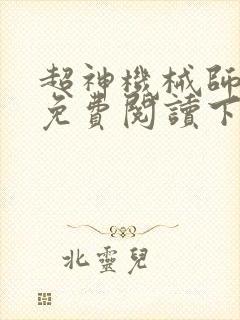 超神機械師
免費閱讀下
北靈兒